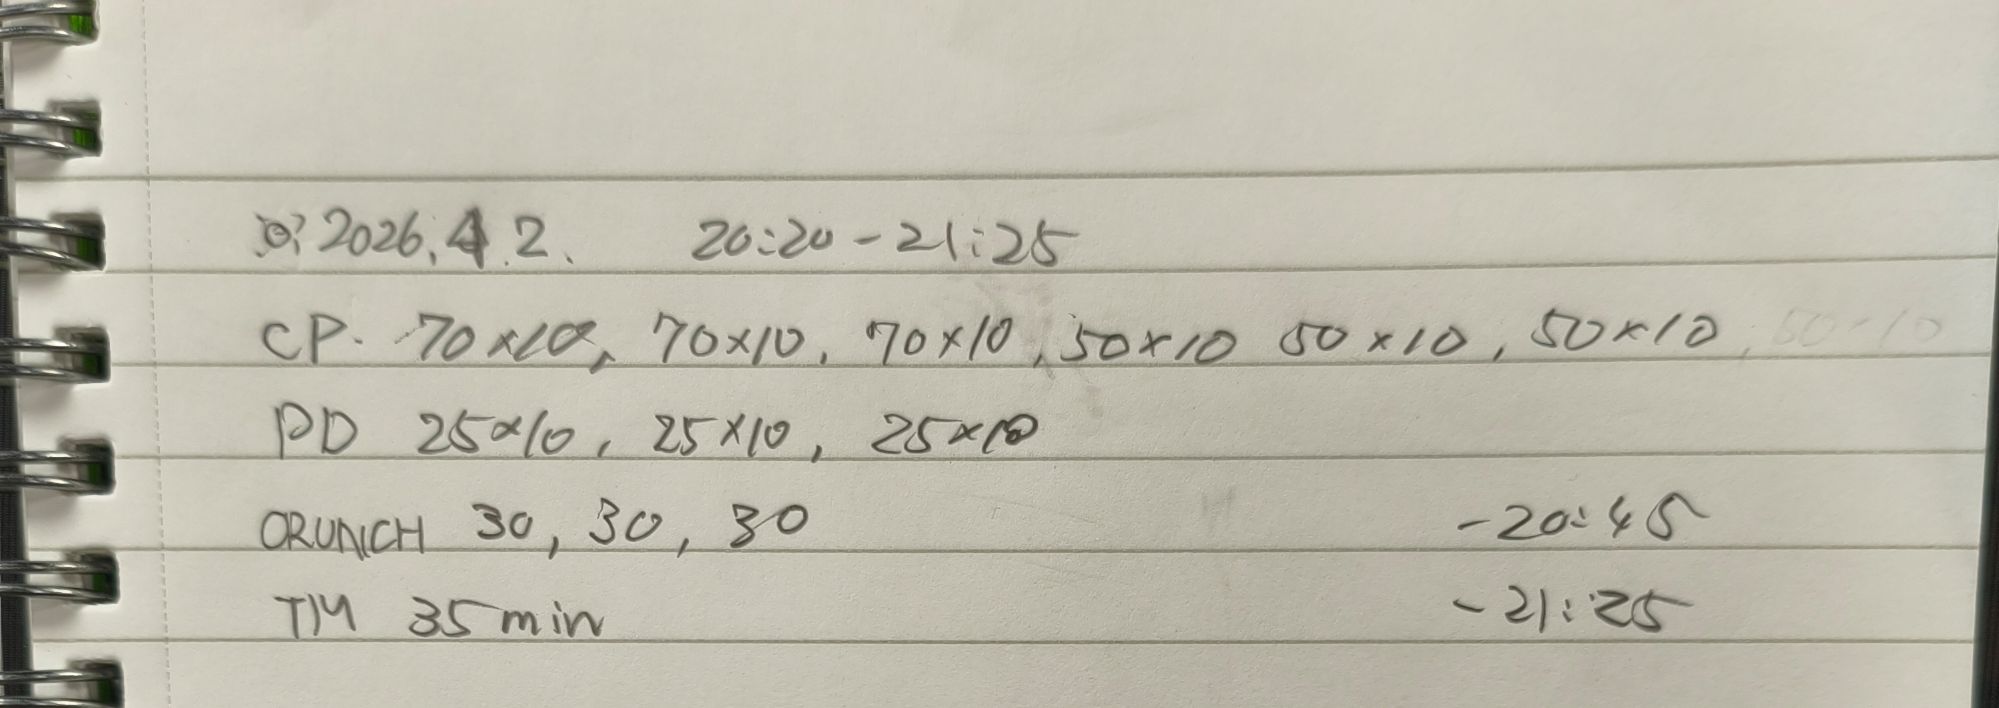 ※ 2026.4.2. 20:20-21:25
CP. 70×10, 70×10, 70×10, 50×10 50×10, 50×10, 50×10
PD 25×10, 25×10, 25×10
CRUNCH 30, 30, 30 -20:45
TM 35min -21:25